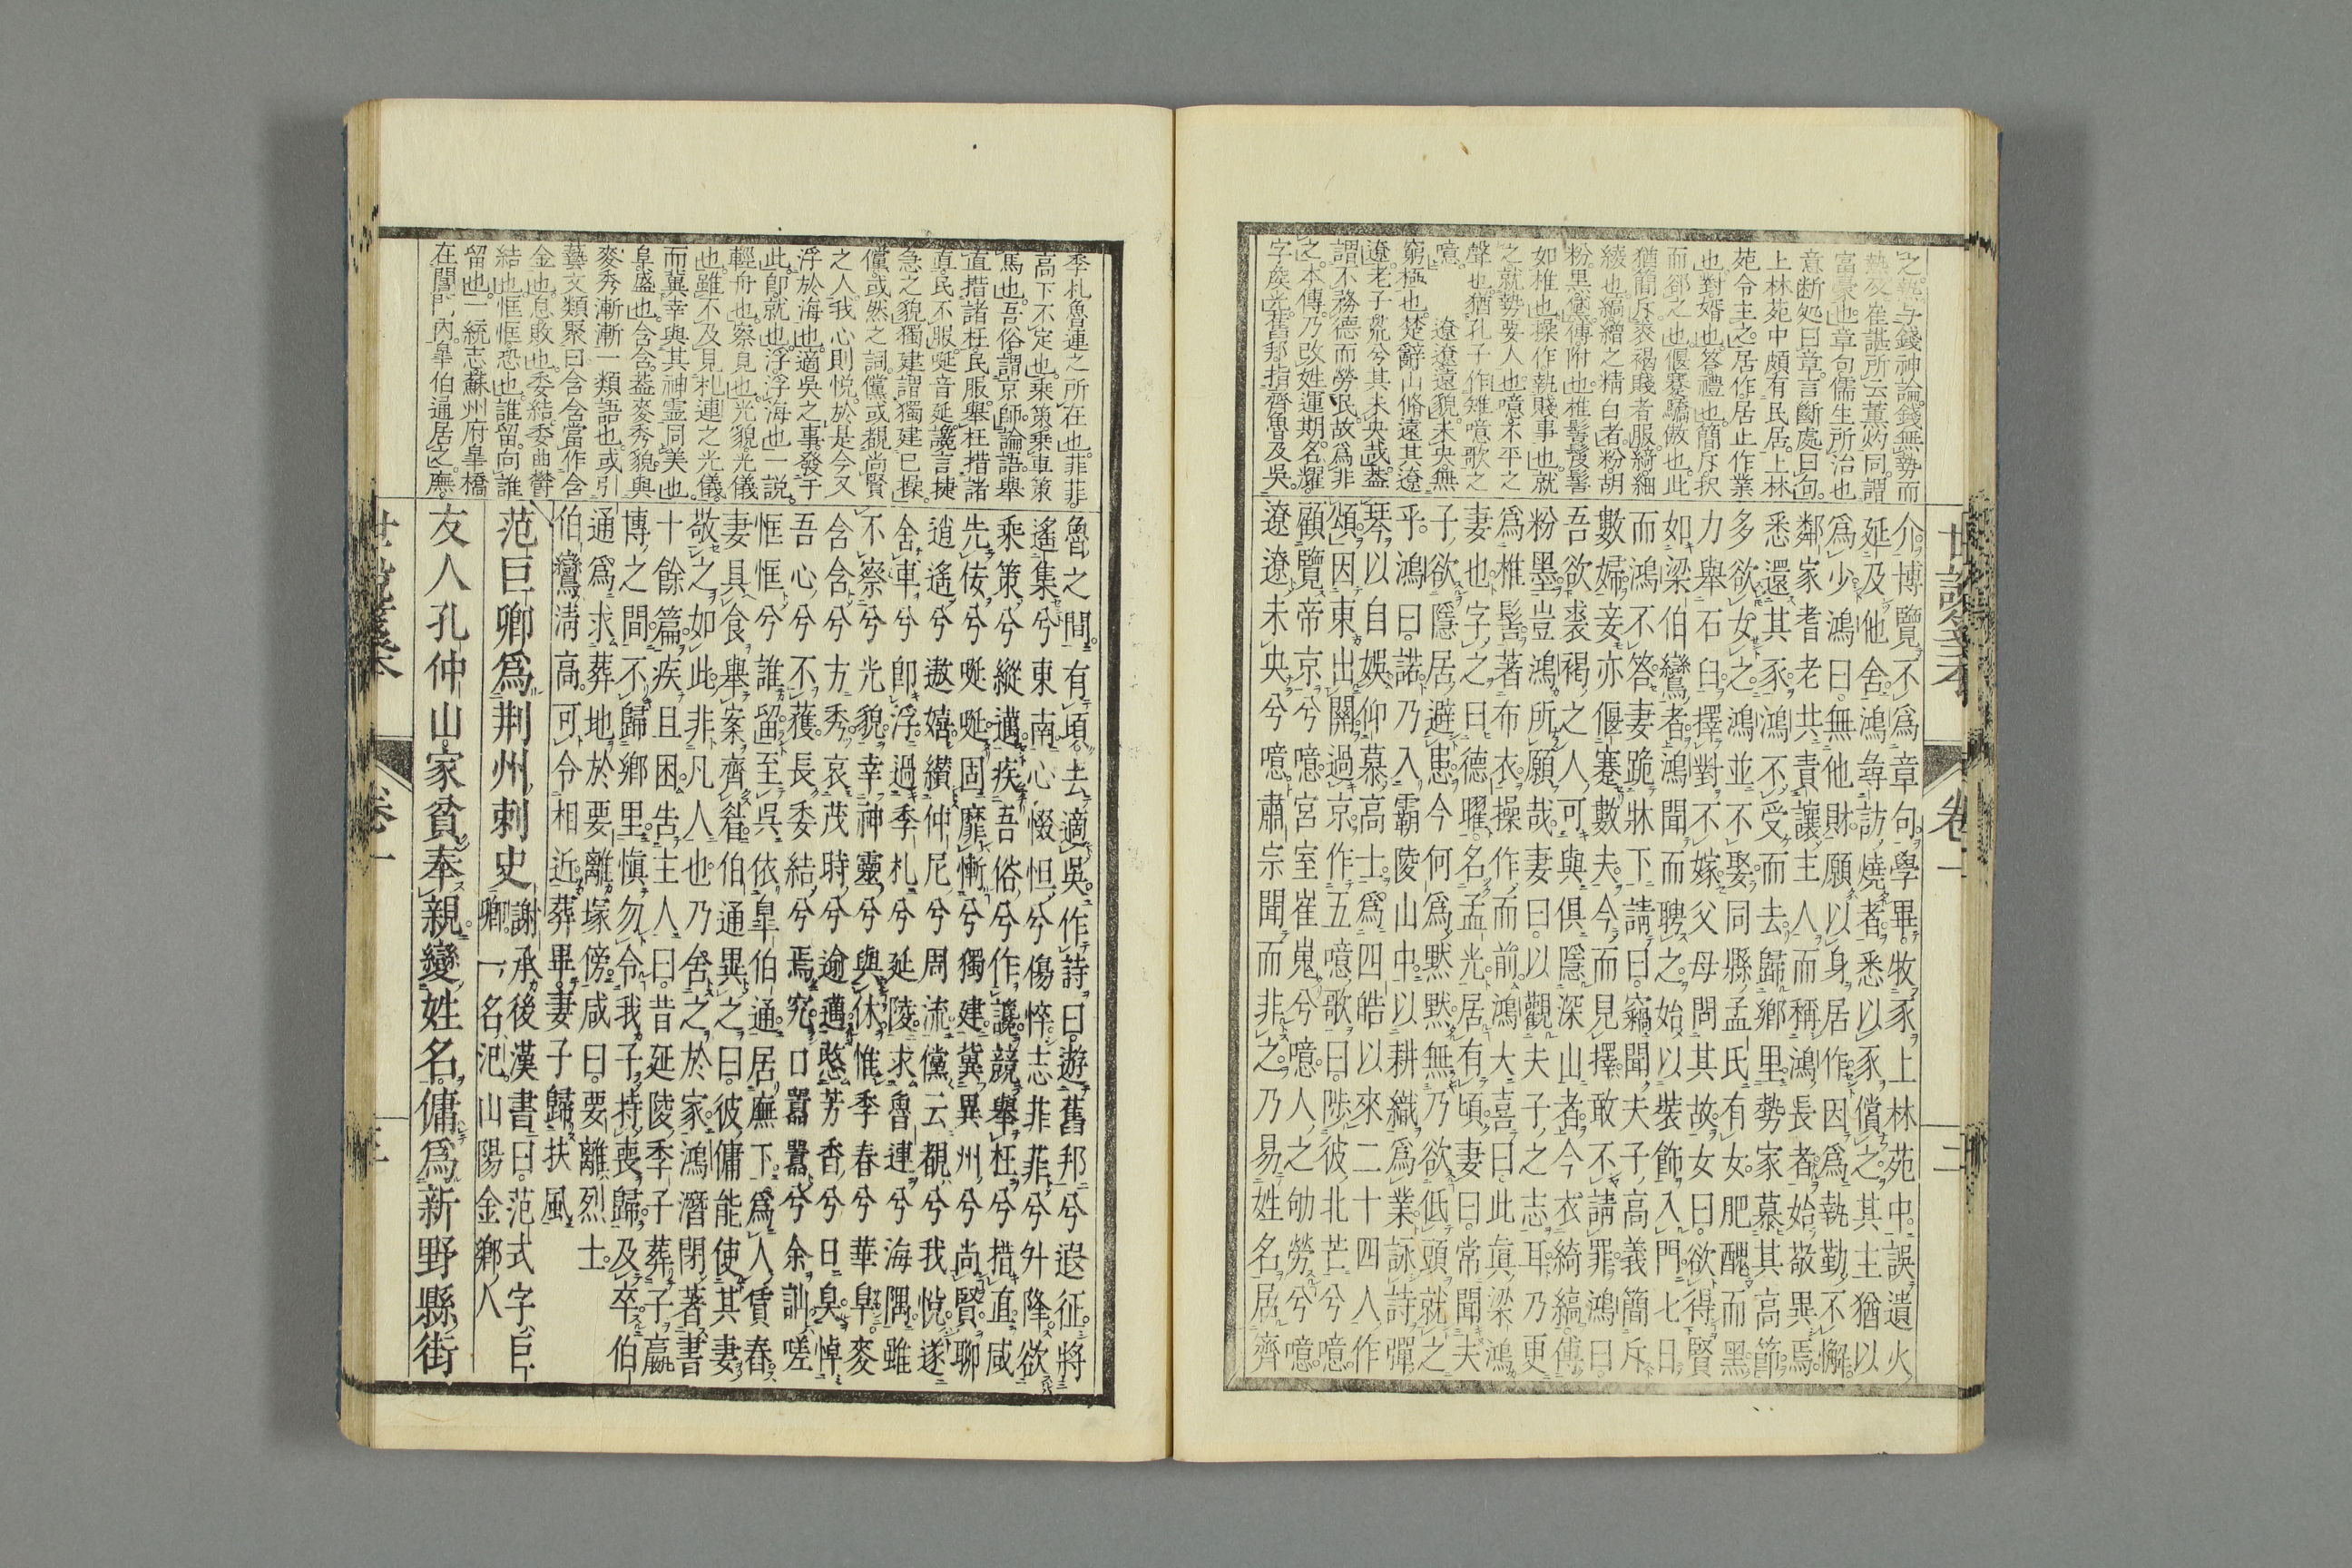 之熱与錢神論錢無勢而
熱及崔諶所云薫灼同謂
富豪也章句儒生所治也
意断処曰章言斷處曰句
上林苑中頗有民居上林
苑令主之居作居止作業
也對婿也答禮也簡斥択
而郤之也偃蹇驕傲也此
猶簡斥裘褐賤者服綺細
綾也縞繒之精白者粉胡
粉黒黛傅附也椎髻髪髻
如椎也操作執賤事也就
之就勢要人也噫不平之
聲也猶孔子作雉噫歌之
噫遼遼遠貌未央無
窮極也楚辭山脩遠其遼
遼老子荒兮其未央哉蓋
謂不務德而勞民故爲非
之本傳乃改姓運期名燿
字矦光舊邦指齊魯及吳
介博覽不爲章句學畢牧豕上林苑中誤遺火
延及他舍鴻尋訪燒者悉以豕償之其主猶以
爲少鴻曰無他財願以身居作因爲執勤不懈
鄰家耆老共責讓主人而稱鴻長者始敬異焉
悉還其豕鴻不受而去歸鄉里勢家慕其高節
多欲女之鴻並不娶同縣孟氏有女肥醜而黑
力舉石臼擇對不嫁父母問其故女曰欲得賢
如梁伯鸞者鴻聞而聘之始以裝飾入門七日
而鴻不答妻跪牀下請曰竊聞夫子高義簡斥
數婦妾亦偃蹇數夫今而見擇敢不請罪鴻曰
吾欲裘褐之人可與俱隱深山者今衣綺縞傅
粉墨豈鴻所願哉妻曰以觀夫子之志耳乃更
爲椎髻著布衣操作而前鴻大喜曰此眞梁鴻
妻也字之曰德曜名孟光居有頃妻曰常聞夫
子欲隱居避患今何爲默默無乃欲低頭就之
乎鴻曰諾乃入霸陵山中以耕織爲業詠詩彈
琴以自娛仰慕高士爲四皓以來二十四人作
頌因東出關過京作五噫歌曰陟彼北芒兮噫
顧覽帝京兮噫宮室崔嵬兮噫人之劬勞兮噫
遼遼未央兮噫肅宗聞而非之乃易姓名居齊
季札魯連之所在也菲菲
高下不定也乘策乘車策
馬也吾俗謂京師論語舉
直措諸枉民服舉枉措諸
直民不服唌音延讒言捷
急之貌獨建謂獨建已操
儻或然之詞儻或覩尚賢
之人我心則悦於是今又
浮於海也適吳之事發于
此卽就也浮浮海也一説
輕舟也察見也光貌光儀
也雖不及見札連之光儀
而冀幸與其神霊同美也
阜盛也含含蓋麥秀貌與
麥秀漸漸一類語也或引
藝文類聚曰含含當作含
金也怠敗也委結委曲欝
結也恇恇恐也誰留向誰
留也一統志蘇州府皐橋
在閶門内皐伯通居之廡
魯之間有頃去適吳作詩曰遊舊邦兮遐征將
遙集兮東南心惙怛兮傷悴志菲菲兮升降欲
乘策兮縱邁疾吾俗兮作讒競舉枉兮措直咸
先佞兮唌唌固靡慚兮獨建冀異州兮尚賢聊
逍遙兮遨嬉纘仲尼兮周流儻云覩兮我悅遂
舍車兮卽浮過季札兮延陵求魯連兮海隅雖
不察兮光貌幸神靈兮與休惟季春兮華阜麥
含含兮方秀哀茂時兮逾邁愍芳香兮日臭悼
吾心兮不獲長委結兮焉究口囂囂兮余訓嗟
恇恇兮誰留至吳依皐伯通居廡下爲人賃舂
妻具食舉案齊眉伯通異之曰彼傭能使其妻
敬之如此非凡人也乃舍之於家鴻潛閉著書
十餘篇疾且困告主人曰昔延陵季子葬子嬴
博之間不歸鄉里愼勿令我子持喪歸及卒伯
通爲求葬地於要離塚傍咸曰要離烈士
伯鸞淸高可令相近葬畢妻子歸扶風
范巨卿爲荆州刺史謝承後漢書曰范式字巨
卿一名汜山陽金鄉人
友人孔仲山家貧奉親變姓名傭爲新野縣街